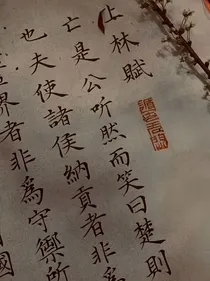 上林賦
亡是公听然而笑曰楚則
也夫使諸侯納貢者非為
界者非為守禦所
國